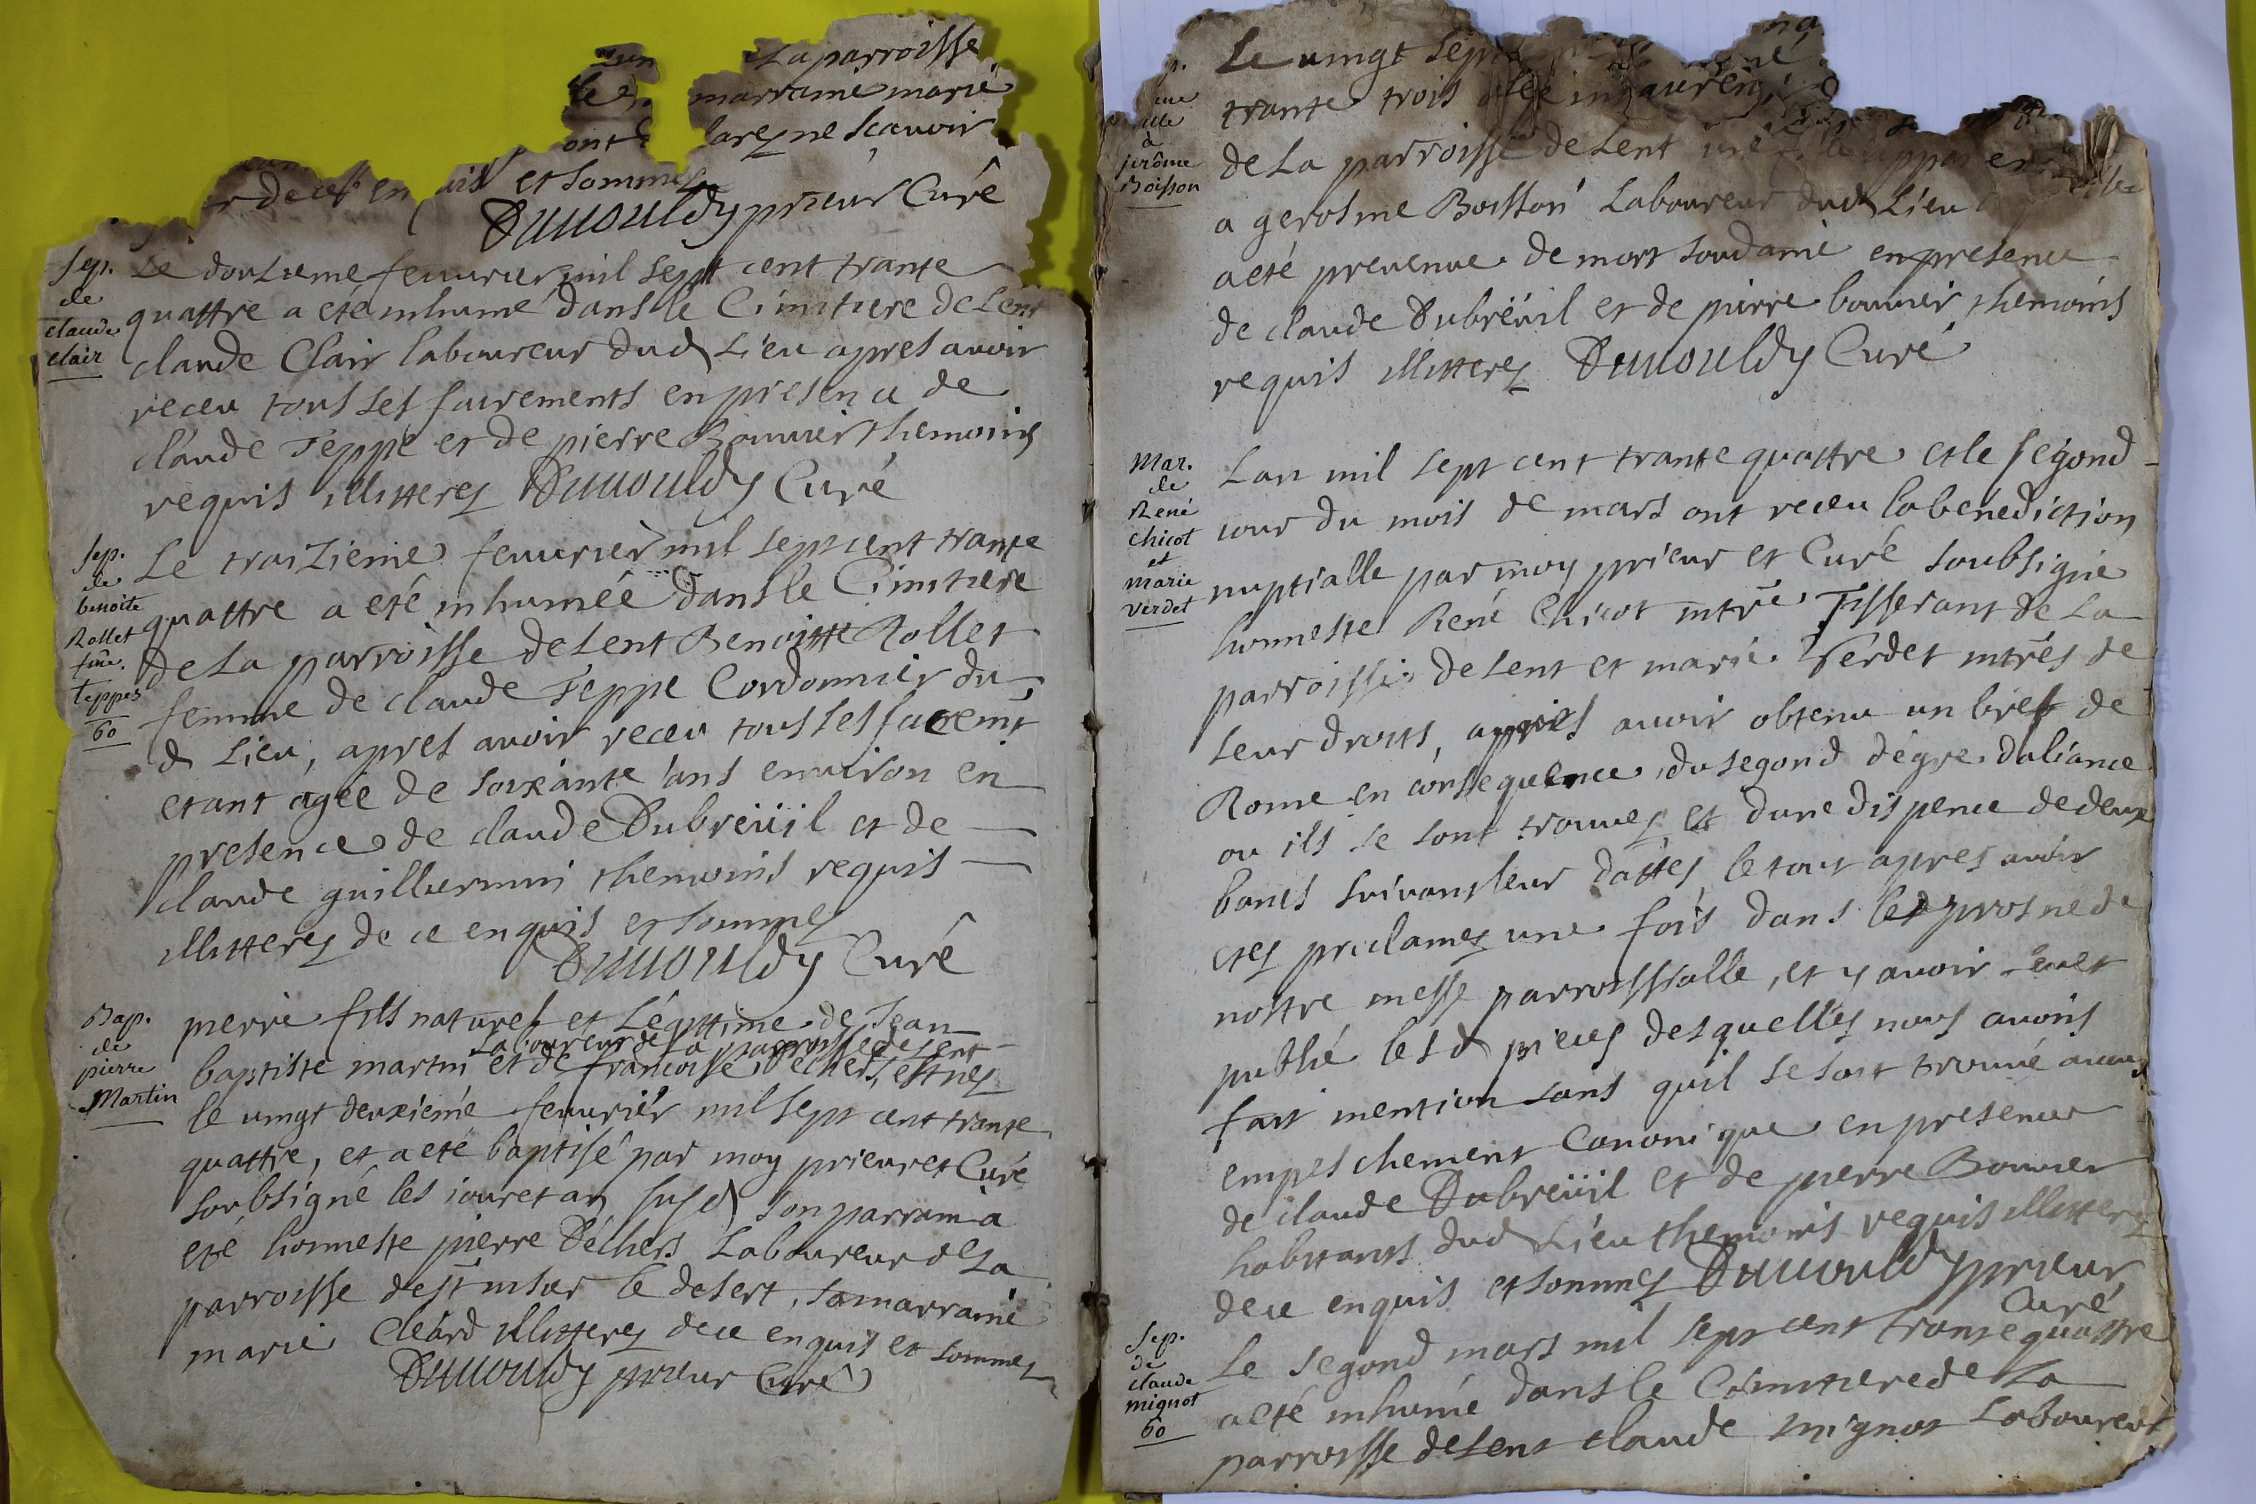 La parroisse
marraine marie
ont larez ne scavoir
de ce en quis et sommez
Dunouldy prieur Curé
Sep.
de
claude
clair
Le douzieme feuurier mil sept cent trante
quattre a eté inhumé dans le Cimitiere de Lent
claude Clair laboureur dud Lieu apres auoir
receu tous ses sacrements en presence de
claude Teppe et de pierre Bouuier themoins
requis illitterez Dunouldy Curé
Sep.
de
benoite
Rollet
fme.
Teppes
60
Le traizieme feuurier mil sept cent trante
quattre a eté inhumée dans le Cimitiere
de La parroisse de Lent Benoitte Rollet
femme de claude Teppe Cordonnier du
d Lieu, apres auoir receu tous ses sacremt
etant agée de soixante ans enuiron en
presence de claude Dubreüil et de
claude guillermin themoins requis
illitterez de ce enquis et sommez
Dunouldy Curé
Bap.
de
pierre
Martin
pierre fils naturel et Légitime de Jean
Laboureur de La parroisse de Lent
baptiste martin et de francoise Déchers, est nez
le uingt deuxieme feuurier mil sept cent trante
quattre, et a eté baptisé par moy prieur et Curé
soubsigné les iour et an susd son parrain a
eté honneste pierre Déchers Laboureur de La
parroisse de st nisier le desert, sa marraine
marie Cleard illitterez de ce enquis et sommez
Dunouldy prieur Curé
à
jerôme
Boisson
Le uingt sept
trante trois
de La parroisse de Lent une fille
a gerosme Boisson Laboureur dud Lieu
a eté preuenue de mort soudaine en presence
de claude Dubreüil et de pierre bouuier themoins
requis illitterez Dunouldy Curé
Mar.
de
René
chicot
et
marie
verdet
Lan mil sept cent trante quattre et le segond
iour du mois de mars ont receu la bénédiction
nuptialle par moy prieur et Curé soubsigné
honneste René Chicot mtre Tisserant de La
parroisse de Lent et marie Verdet mtres de
leur droits, apres auoir obtenu un bref de
Rome en consequence du segond dégre daliance
ou ils se sont trouuez et dune dispence de deux
bancs suiuant leur dattes le tout apres auoir
etez proclamez une fois dans le prosne de
nostre messe parroissialle, et y auoir leu et
publié lesd pieces desquelles nous auons
fait mention sans quil se soit trouué aucun
empeschement Canonique en presence
de claude Dubreüil et de pierre Bouuier
habitants dud Lieu themoins requis illitterez
de ce enquis et sommez Dunouldy prieur
Curé
Sep.
de
claude
mignot
60
Le segond mars mil sept cent trante quattre
a eté inhumé dans le Cimitiere de La
parroisse de Lent claude mignot Laboureur